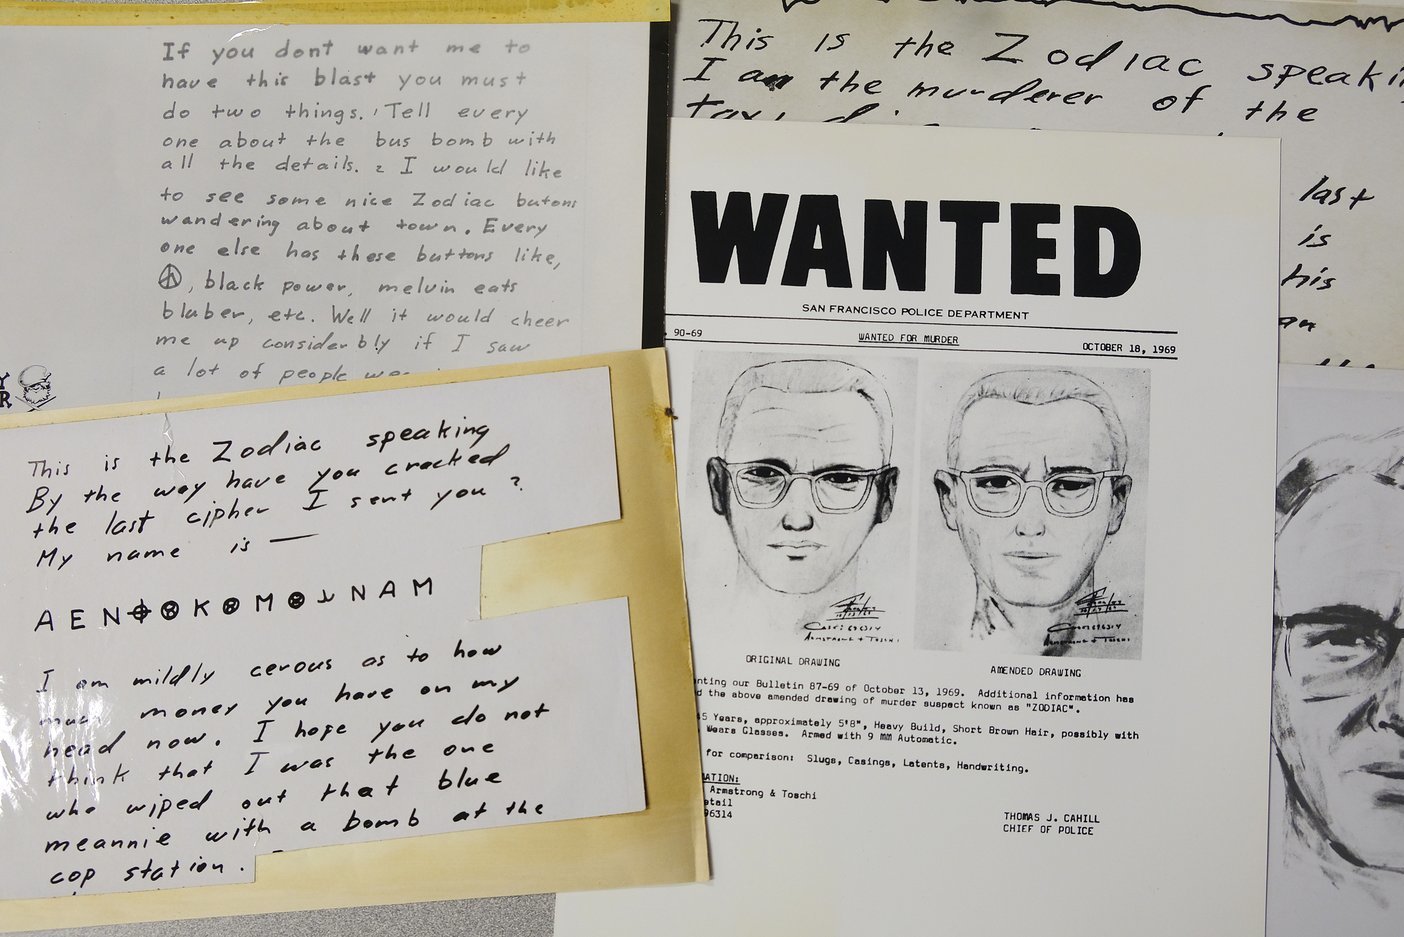 If you dont want me to
have this blast you must
do two things. Tell every
one about the bus bomb with
all the details. 2 I would like
to see some nice Zodiac butons
wandering about town. Every
one else has these buttons like,
☮, black power, melvin eats
bluber, etc. Well it would cheer
me up considerbly if I saw
a lot of people
This is the Zodiac
I am the murderer of the
last
is
his
an
This is the Zodiac speaking
By the way have you cracked
the last cipher I sent you ?
My name is —
A E N ⊕ K M N A M
I am mildly cerous as to how
much money you have on my
head now. I hope you do not
think that I was the one
who wiped out that blue
meannie with a bomb at the
cop station.
WANTED
SAN FRANCISCO POLICE DEPARTMENT
90-69 WANTED FOR MURDER OCTOBER 18, 1969
ORIGINAL DRAWING AMENDED DRAWING
our Bulletin 87-69 of October 13, 1969. Additional information has
the above amended drawing of murder suspect known as "ZODIAC".
Years, approximately 5'8", Heavy Build, Short Brown Hair, possibly with
Wears Glasses. Armed with 9 MM Automatic.
for comparison: Slugs, Casings, Latents, Handwriting.
Armstrong & Toschi
96314
THOMAS J. CAHILL
CHIEF OF POLICE